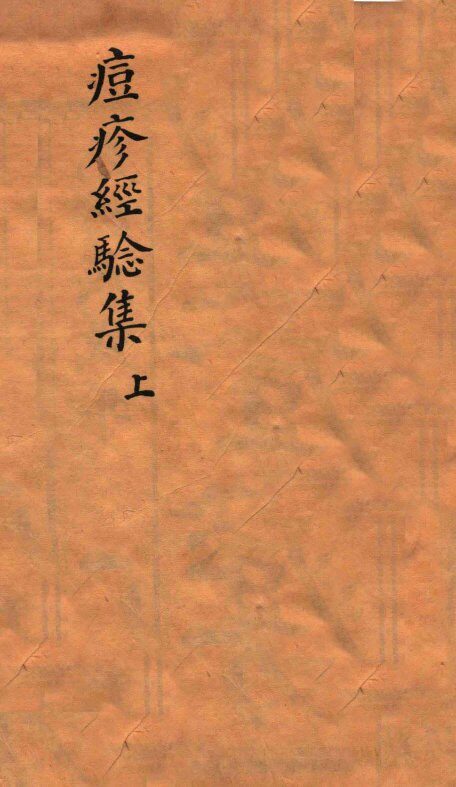 痘疹經騐集
上